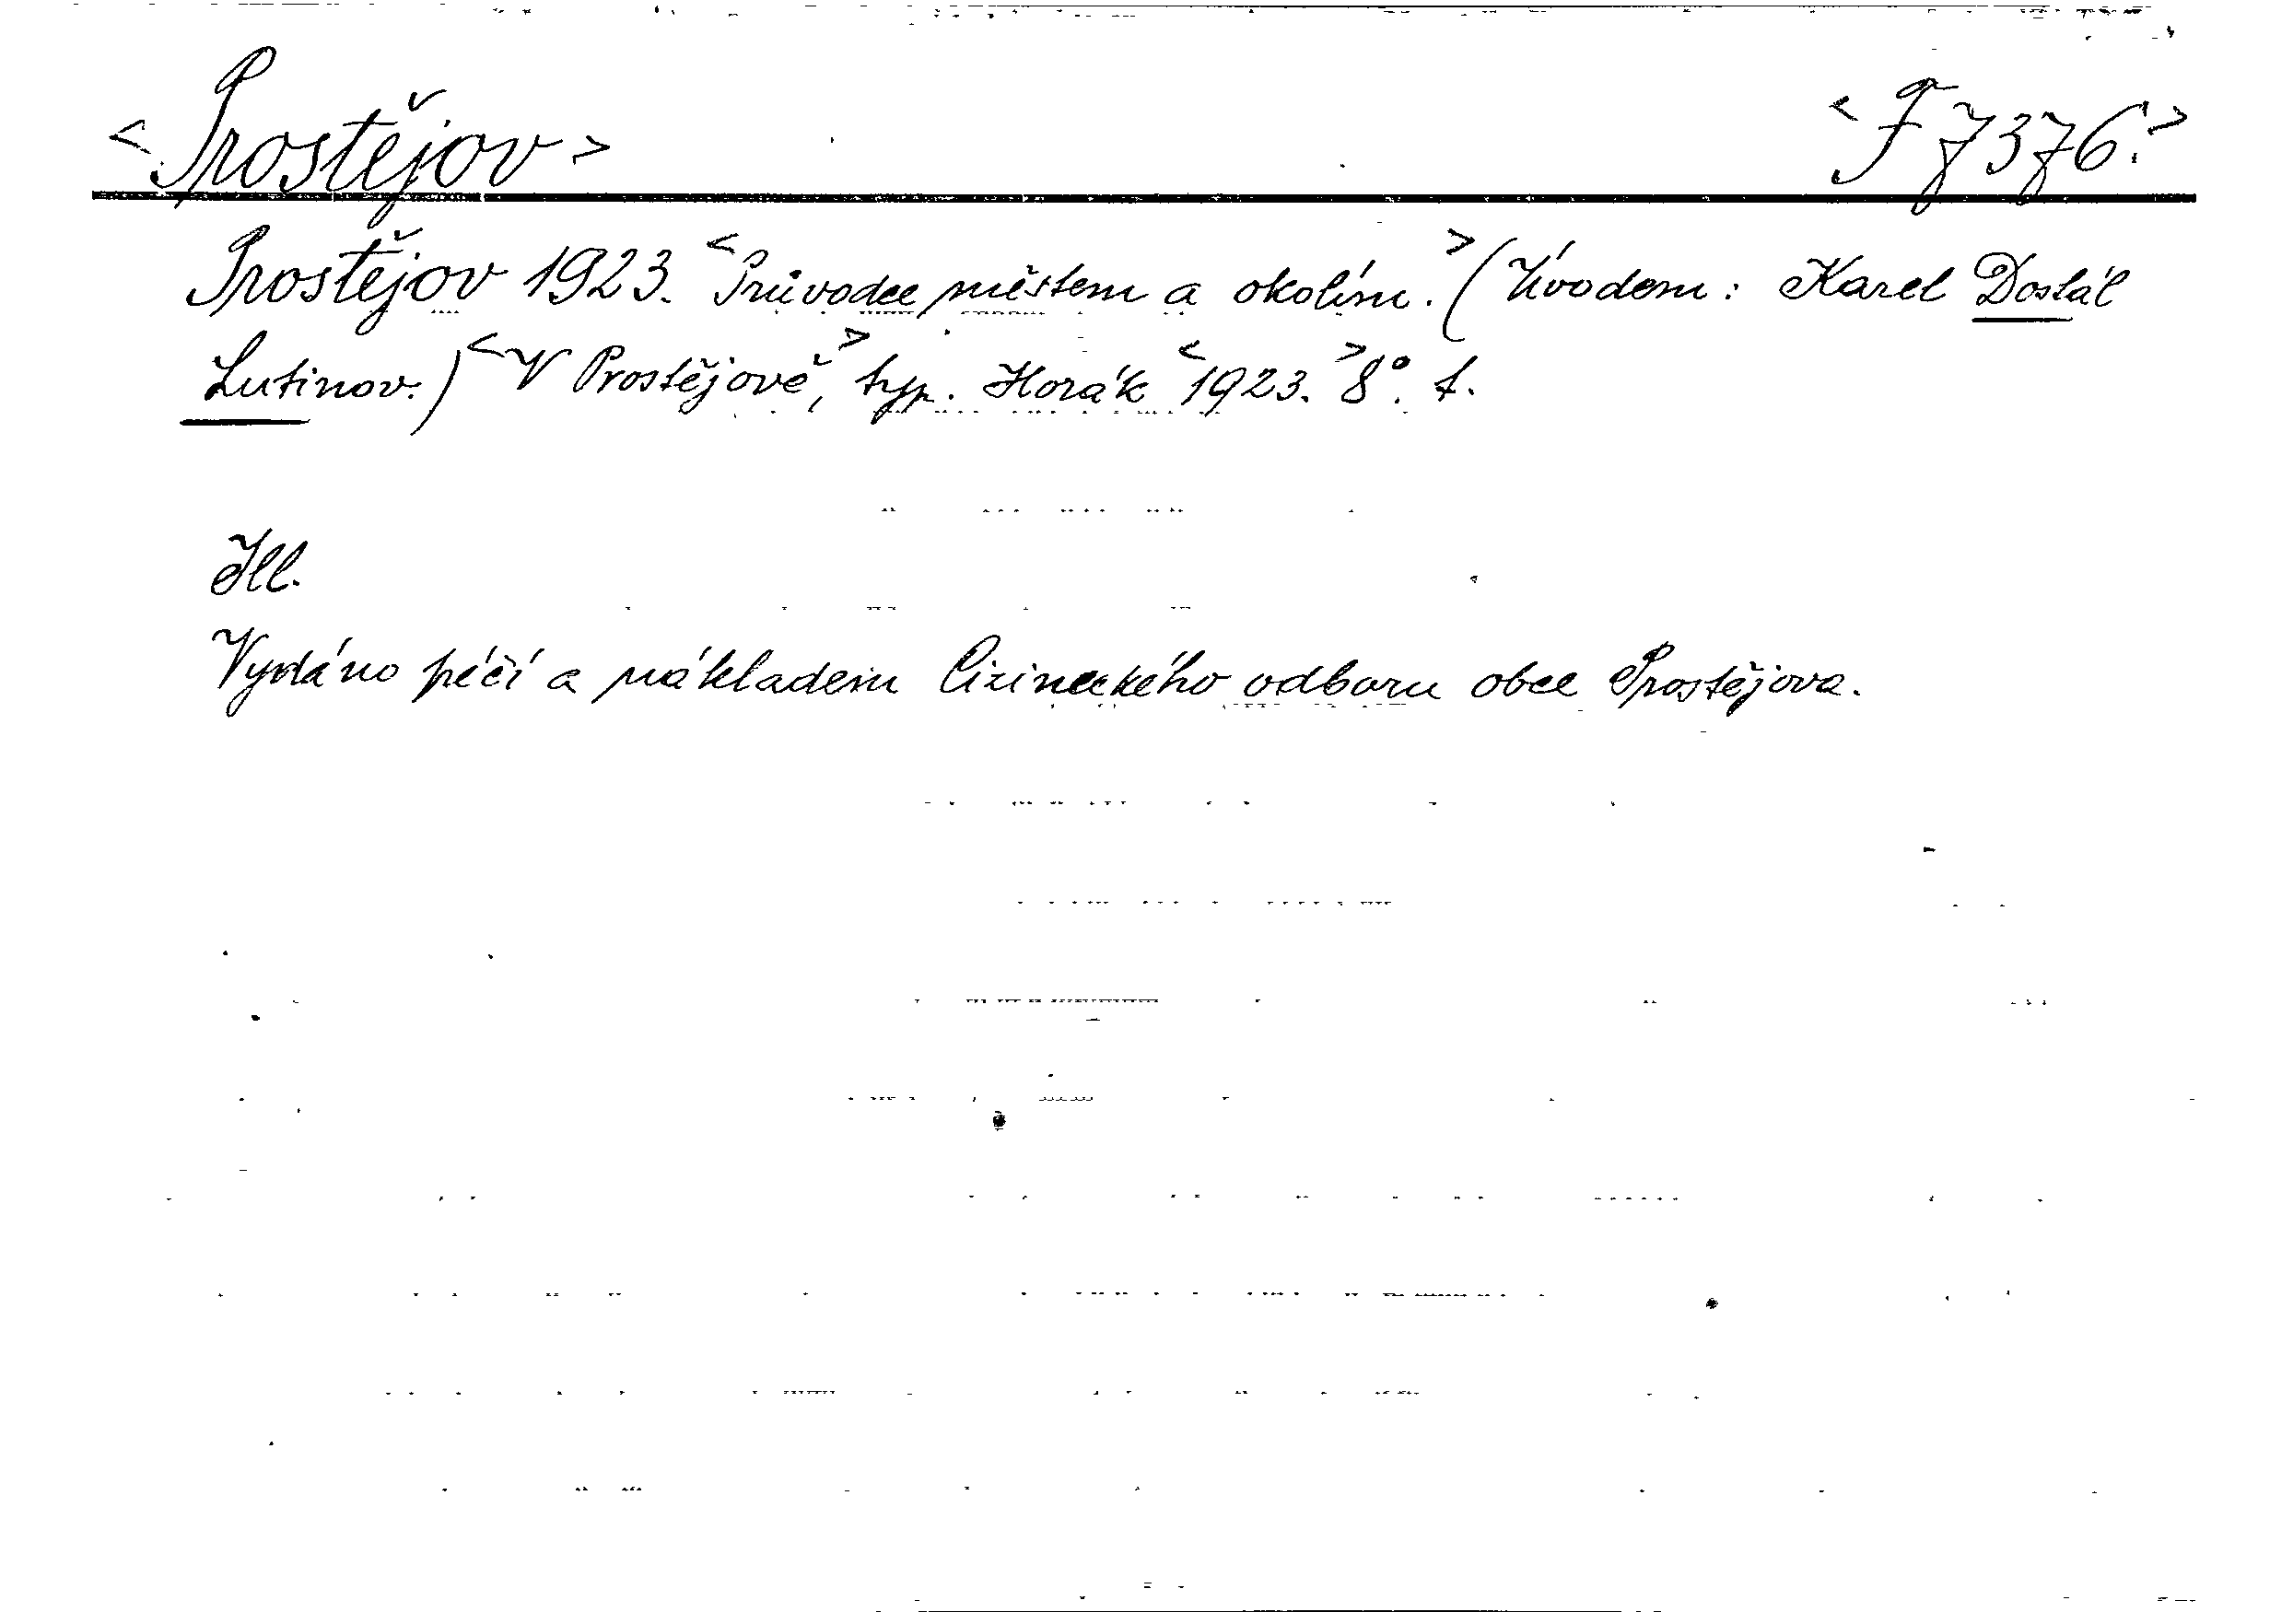 <Prostějov> <F 7376.>
Prostějov 1923. <Průvodce městem a okolím.> (Úvodem: Karel Dostál
Lutinov.) <V Prostějově,> typ. Horák <1923.> 8°. f.
Ill.
Vydáno péčí a nákladem Cizineckého odboru obce Prostějova.